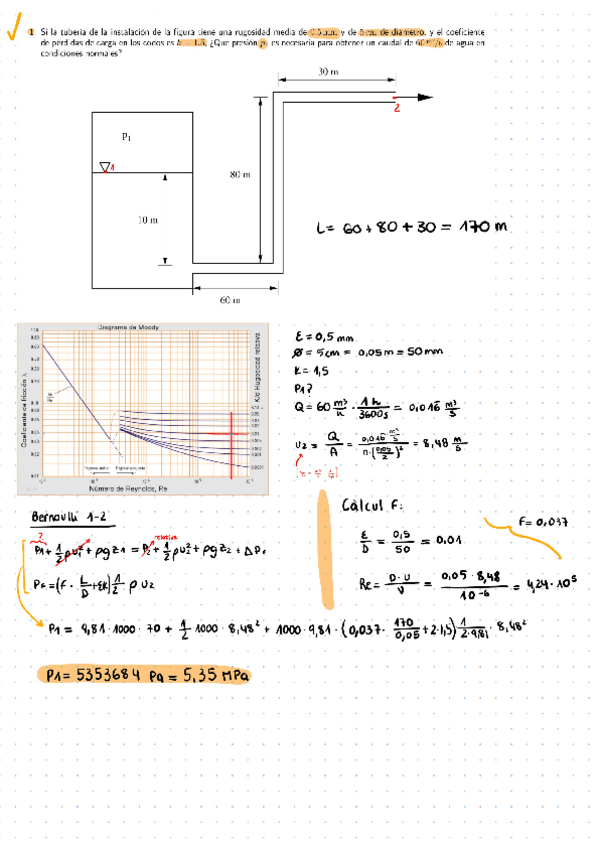 1 Si la tubería de la instalación de la figura tiene una rugosidad media de 0.5 mm. y de 5 cm. de diámetro, y el coeficiente
de pérdidas de carga en los codos es k = 1,5, ¿Que presión p1 es necesaria para obtener un caudal de 60 m³/h de agua en
condiciones normales?
30 m
2
P1
1
80 m
10 m
L = 60 + 80 + 30 = 170 m
60 m
Diagrama de Moody
Coeficiente de fricción λ
K/d Rugosidad relativa
Número de Reynolds, Re
ε = 0,5 mm
Ø = 5 cm = 0,05 m = 50 mm
K = 1,5
P1?
Q = 60 m³/h · 1 h/3600 s = 0,016 m³/s
v2 = Q/A = 0,016 m³/s / π·(0,05/2)² = 8,48 m/s
Bernoulli 1-2
Càlcul F:
F = 0,037
? relativa
P1 + 1/2 ρv1² + ρgz1 = P2 + 1/2 ρv2² + ρgz2 + ΔPf
ε/D = 0,5/50 = 0.01
PF = (F · L/D + ΣK) 1/2 ρ v2
Re = D·v/ν = 0,05 · 8,48 / 10⁻⁶ = 4,24 · 10⁵
P1 = 9,81 · 1000 · 70 + 1/2 · 1000 · 8,48² + 1000 · 9,81 · (0,037 · 170/0,05 + 2·1,5) 1/2·9,81 · 8,48²
P1 = 5353684 Pa = 5,35 MPa